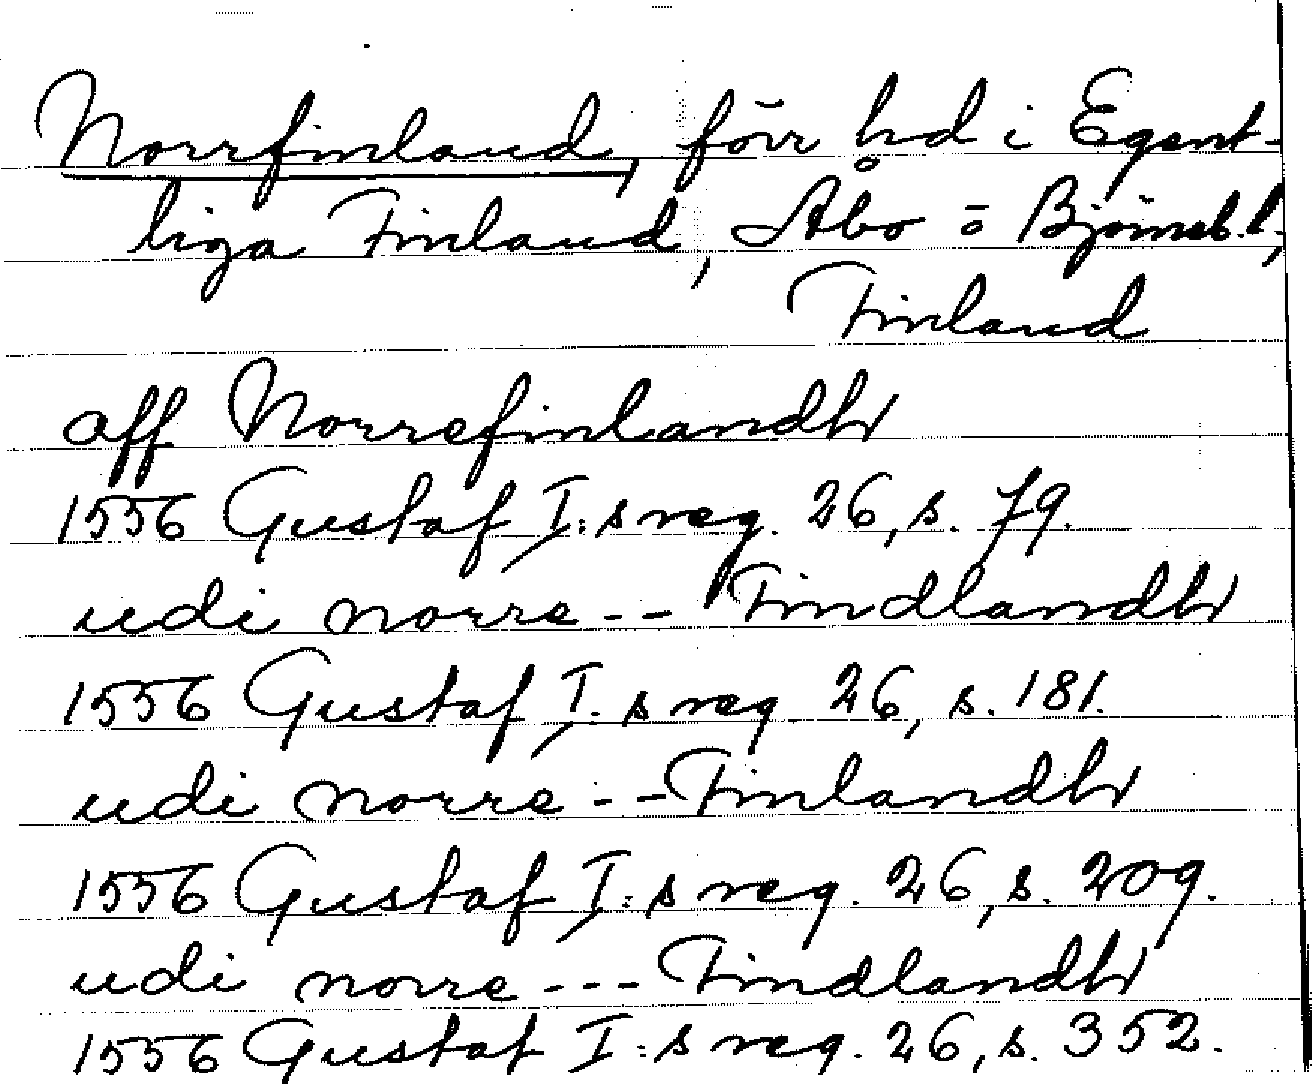 Norrfinland, förr hd i Egent-
liga Finland, Åbo o Björneb. l,
Finland
aff Norrefinlandh
1556 Gustaf I:s reg. 26, s. 79.
udi norre -- Findlandh
1556 Gustaf I:s reg. 26, s. 181.
udi norre -- Finlandh
1556 Gustaf I:s reg. 26, s. 209.
udi norre --- Findlandh
1556 Gustaf I:s reg. 26, s. 352.